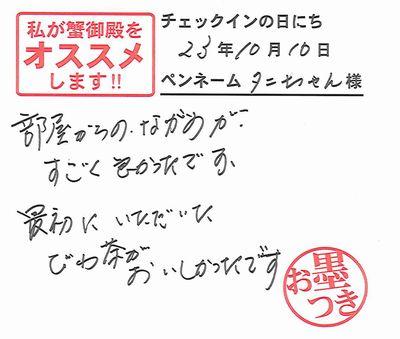 私が蟹御殿を
オススメ
します!!
チェックインの日にち
23年10月10日
ペンネーム タニちゃん様
部屋からの.ながめが
すごく良かったです、
最初に いただいた
びわ茶が
おいしかったです
お墨つき